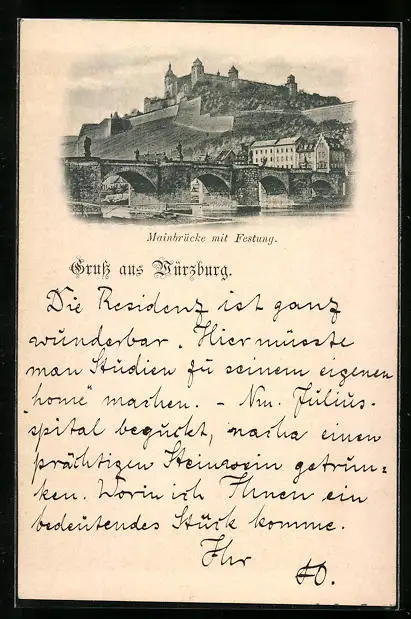 Mainbrücke mit Festung.
Gruß aus Würzburg.
Die Residenz ist ganz
wunderbar. Hier müsste
man Studien zu seinem eigenen
"home" machen. – Nm. Julius-
spital beguckt, nacha einen
prächtigen Steinwein getrun-
ken. Worin ich Ihnen ein
bedeutendes Stück komme.
Ihr